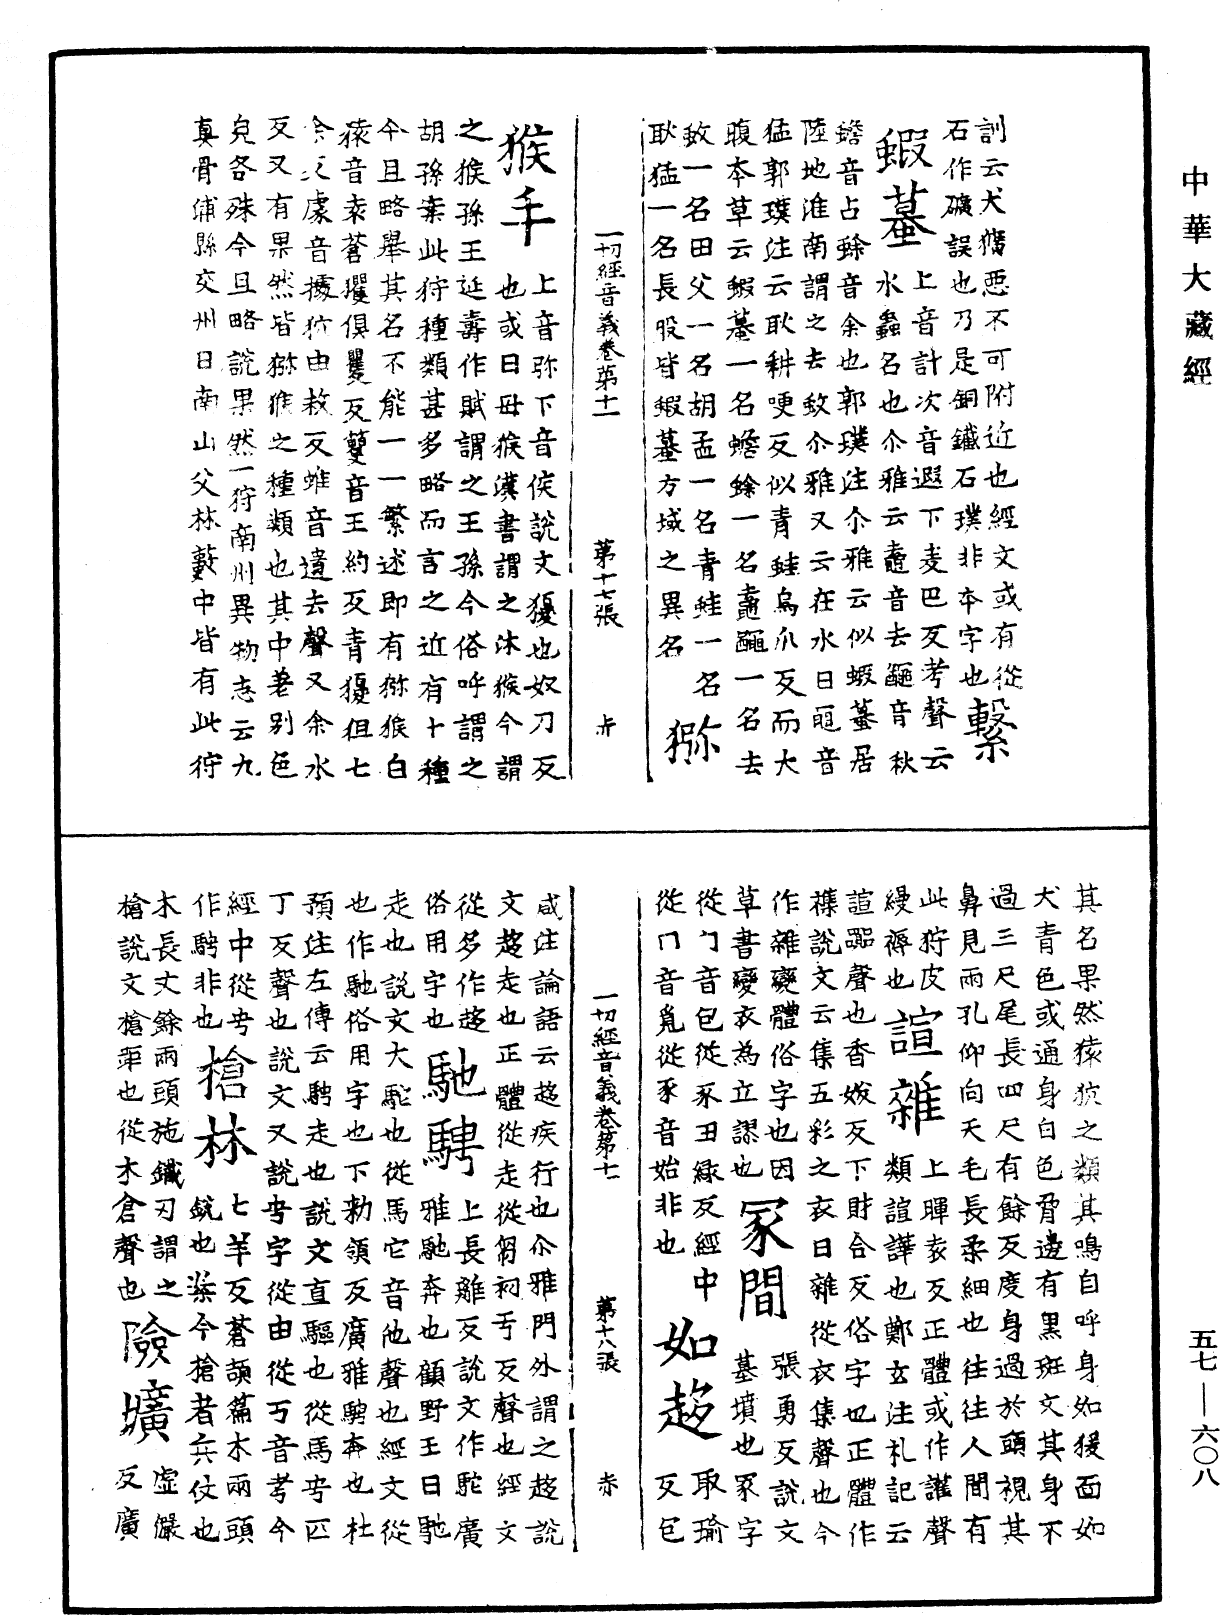 中華大藏經
訓云犬獷惡不可附近也經文或有從
石作礦誤也乃是銅鐵石璞非本字也繫
蝦蟇上音計次音遐下麦巴反考聲云
水蟲名也尒雅云鼁音去䵷音秋
蟾音占蜍音余也郭璞注尒雅云似蝦蟇居
陸地淮南謂之去蚥尒雅又云在水曰黽音
猛郭璞注云耿耕哽反似青蛙烏爪反而大
腹本草云蝦蟇一名蟾蜍一名鼁䵷一名去
蚥一名田父一名胡孟一名青蛙一名
耿猛一名長股皆蝦蟇方域之異名 猕
一切經音義卷第十一 第十七張 㚘
猴手上音弥下音侯說文猨也奴刀反
也或曰母猴漢書謂之沐猴今謂
之猴孫王延壽作賦謂之王孫今俗呼謂之
胡孫案此狩種類甚多略而言之近有十種
今且略舉其名不能一一繁述即有猕猴白
猿音袁蒼玃俱矍反蒦音王約反青猨但七
余反䝘音據狖由救反蜼音遺去聲又余水
反又有果然皆猕猴之種類也其中差别色
皃各殊今且略說果然一狩南州異物志云九
真骨浦縣交州日南山父林藪中皆有此狩
其名果然猿狖之類其鳴自呼身如猨面如
犬青色或通身白色脅邊有黑斑文其身不
過三尺尾長四尺有餘反度身過於頭視其
鼻見兩孔仰向天毛長柔細也往往人間有
此狩皮
縵褥也 諠雜上暉袁反正體或作讙聲
類諠譁也鄭玄注礼記云
諠嚻聲也香妭反下財合反俗字也正體作
襍說文云集五彩之衣曰雜從衣集聲也今
作雜變體俗字也因
草書變衣為立謬也 冡間張勇反說文
墓墳也冡字
從冖音包從豕丑緑反經中 如趍取瑜
從冂音覓從豕音始非也 反包
咸注論語云趍疾行也尒雅門外謂之趍說
文趍走也正體從走從芻初亐反聲也經文
從多作趍
俗用字也 馳騁上長離反說文作駝廣
雅馳奔也顧野王曰馳
走也說文大駝也從馬它音他聲也經文從
也作馳俗用字也下勑領反廣雅騁奔也杜
預注左傳云騁走也說文直驅也從馬甹匹
丁反聲也說文又說甹字從由從丂音考今
經中從甹
作騁非也 槍林七羊反蒼頡篇木兩頭
銳也案今槍者兵仗也
木長丈餘兩頭施鐵刃謂之
槍說文槍距也從木倉聲也 險壙虛儼
反廣
一切經音義卷第十一 第十八張 㚘
五七—六〇八